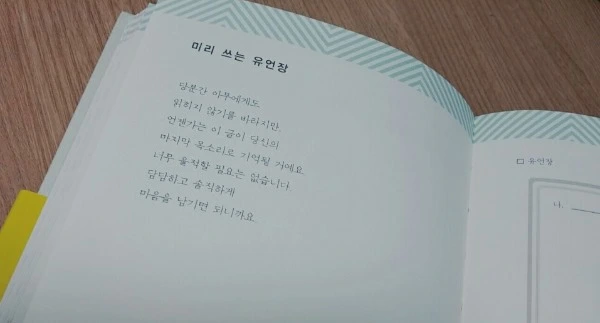 미리 쓰는 유언장
당분간 아무에게도
읽히지 않기를 바라지만,
언젠가는 이 글이 당신의
마지막 목소리로 기억될 거예요.
너무 울적할 필요는 없습니다.
담담하고 솔직하게
마음을 남기면 되니까요.
□ 유언장
나,